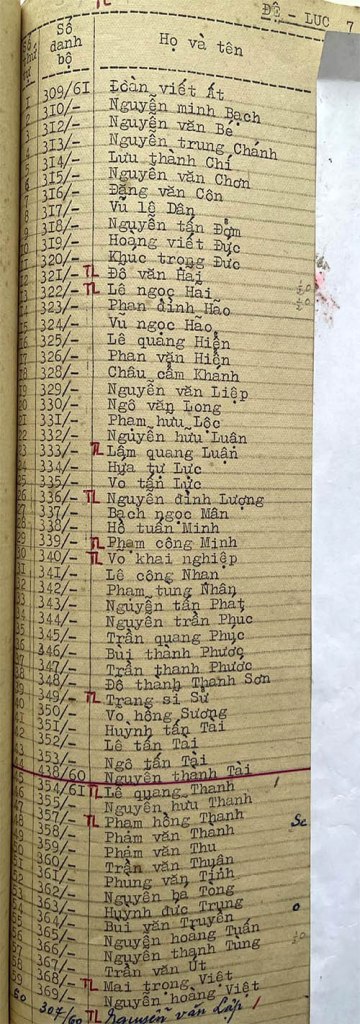 TL
ĐỆ - LỤC 7
Số thứ tự Số danh bộ Họ và tên
1 309/6I Đoàn viết Ất
2 3I0/- Nguyễn minh Bạch
3 3I2/- Nguyễn văn Bé
3I3/- Nguyễn trung Chánh
3I4/- Lưu thành Chí
3I5/- Nguyễn văn Chơn
3I6/- Đặng văn Côn
3I7/- Vũ lê Dân
3I8/- Nguyễn tấn Đởm
3I9/- Hoàng viết Đức
320/- Khuc trọng Đức
32I/- TL Đỗ văn Hải
322/- TL Lê ngọc Hải
323/- Phan đình Hão
324/- Vũ ngọc Hào
325/- Lê quang Hiện
326/- Phan văn Hiện
328/- Châu cẩm Khánh
329/- Nguyễn văn Liệp
330/- Ngô văn Long
33I/- Phạm hữu Lộc
332/- Nguyễn hữu Luận
333/- TL Lâm quang Luận
334/- Hứa tư Lực
335/- Vo tấn Lực
336/- TL Nguyễn đình Lượng
337/- Bạch ngọc Mân
338/- Hồ tuấn Minh
339/- TL Phạm công Minh
340/- TL Vo khai nghiệp
34I/- Lê công Nhan
342/- Phạm tung Nhân
343/- Nguyễn tấn Phat
344/- Nguyễn trần Phuc
345/- Trần quang Phục
346/- Bùi thành Phước
347/- Trần thanh Phước
348/- Đỗ thành Thanh Sơn
349/- TL Trang si Sử
350/- Vo hồng Sương
35I/- Huỳnh tấn Tài
352/- Lê tấn Tài
353/- Ngô tấn Tài
438/60 Nguyễn thành Tài
354/6I TL Lê quang Thanh
355/- Nguyễn hưu Thanh
357/- TL Phạm hồng Thanh Sc
358/- Phạm văn Thanh
359/- Phạm văn Thu
360/- Trần văn Thuận
36I/- Phung văn Tỉnh
362/- Nguyễn bá Tòng
363/- Huỳnh đức Trung o
364/- Bui văn Truyền
365/- Nguyễn hoàng Tuấn
366/- Nguyễn thanh Tung
367/- Trần văn Út
368/- TL Mai trọng Việt
369/- Nguyễn hoàng Việt
60 307/60 TL Nguyễn văn Lập